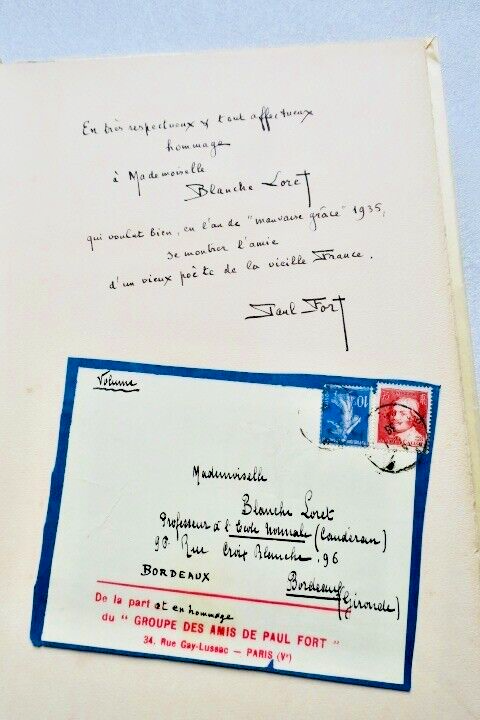 En très respectueux & tout affectueux
hommage
à Mademoiselle
Blanche Loret
qui voulut bien, en l'an de "mauvaise grâce" 1935,
se montrer l'amie
d'un vieux poète de la vieille France.
Paul Fort
Volume
10c
75
Mademoiselle
Blanche Loret
Professeur à l'Ecole Normale (Caudéran)
96 Rue Croix Blanche, 96
BORDEAUX
Bordeaux
(Gironde)
De la part et en hommage
du "GROUPE DES AMIS DE PAUL FORT"
34, Rue Gay-Lussac — PARIS (Vᵉ)